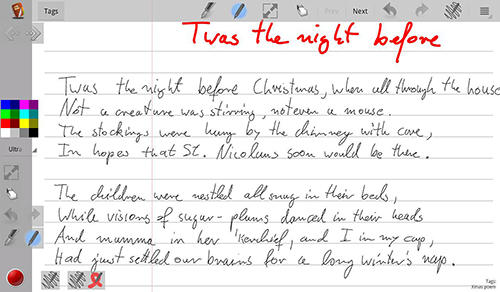 Tags
Prev
Next
Twas the night before
Twas the night before Christmas, when all through the house
Not a creature was stirring, not even a mouse.
The stockings were hung by the chimney with care,
In hopes that St. Nicolaus soon would be there.
Ultra
The children were nestled all snug in their beds,
While visions of sugar-plums danced in their heads
And mamma in her 'kerchief, and I in my cap,
Had just settled our brains for a long winter's nap.
Tags:
Xmas poem